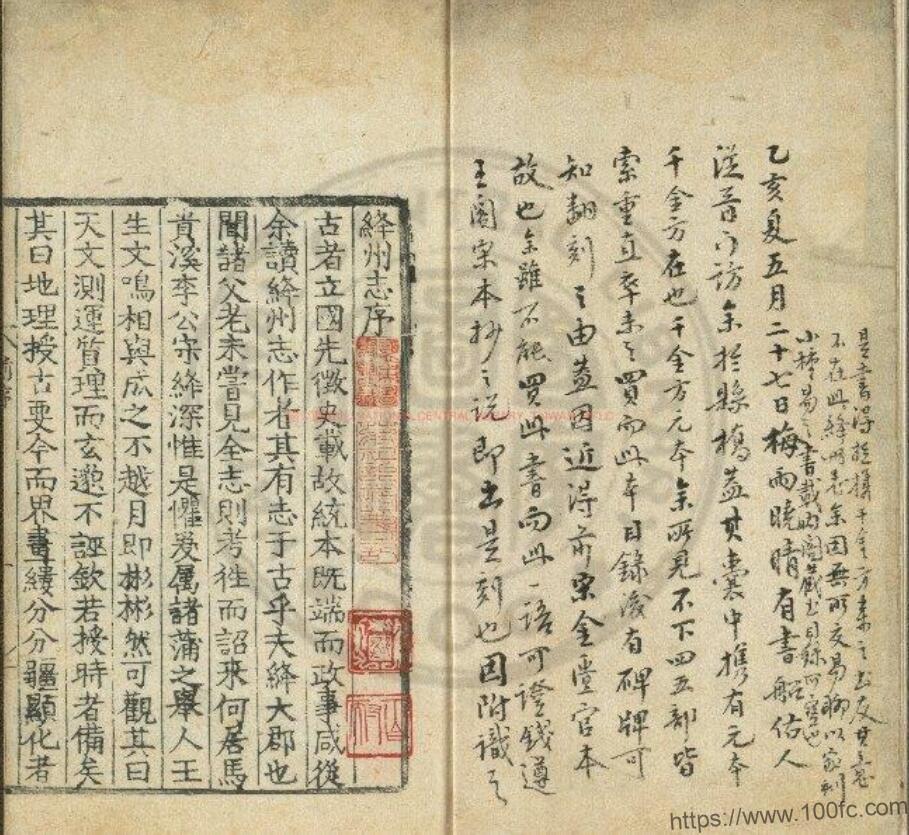 是書得於攜千金方來之書友其意
不在此絳州志余因無所交易聊以家刻
小種易之書載內閣藏書目錄可寶也
乙亥夏五月二十七日梅雨曉晴有書船估人
從苕門訪余於縣橋蓋其囊中攜有元本
千金方在也千金方元本余所見不下四五部皆
索重直卒未之買而此本目錄後有碑牌可
知翻刻之由蓋因近得前宋金堂官本
故也余雖不能買此書而此一語可證錢遵
王閣宋本抄之說即出是刻也因附識之
絳州志序
古者立國先徵史載故統本既端而政事咸從
余讀絳州志作者其有志于古乎夫絳大郡也
聞諸父老未嘗見全志則考徃而詔來何居焉
貢溪李公守絳深惟是懼爰属諸蒲之舉人王
生文鳴相與成之不越月即彬彬然可觀其曰
天文測運質理而玄邈不誣欽若授時者備矣
其曰地理授古要今而界畫縷分分疆顯化者
https://www.100fc.com